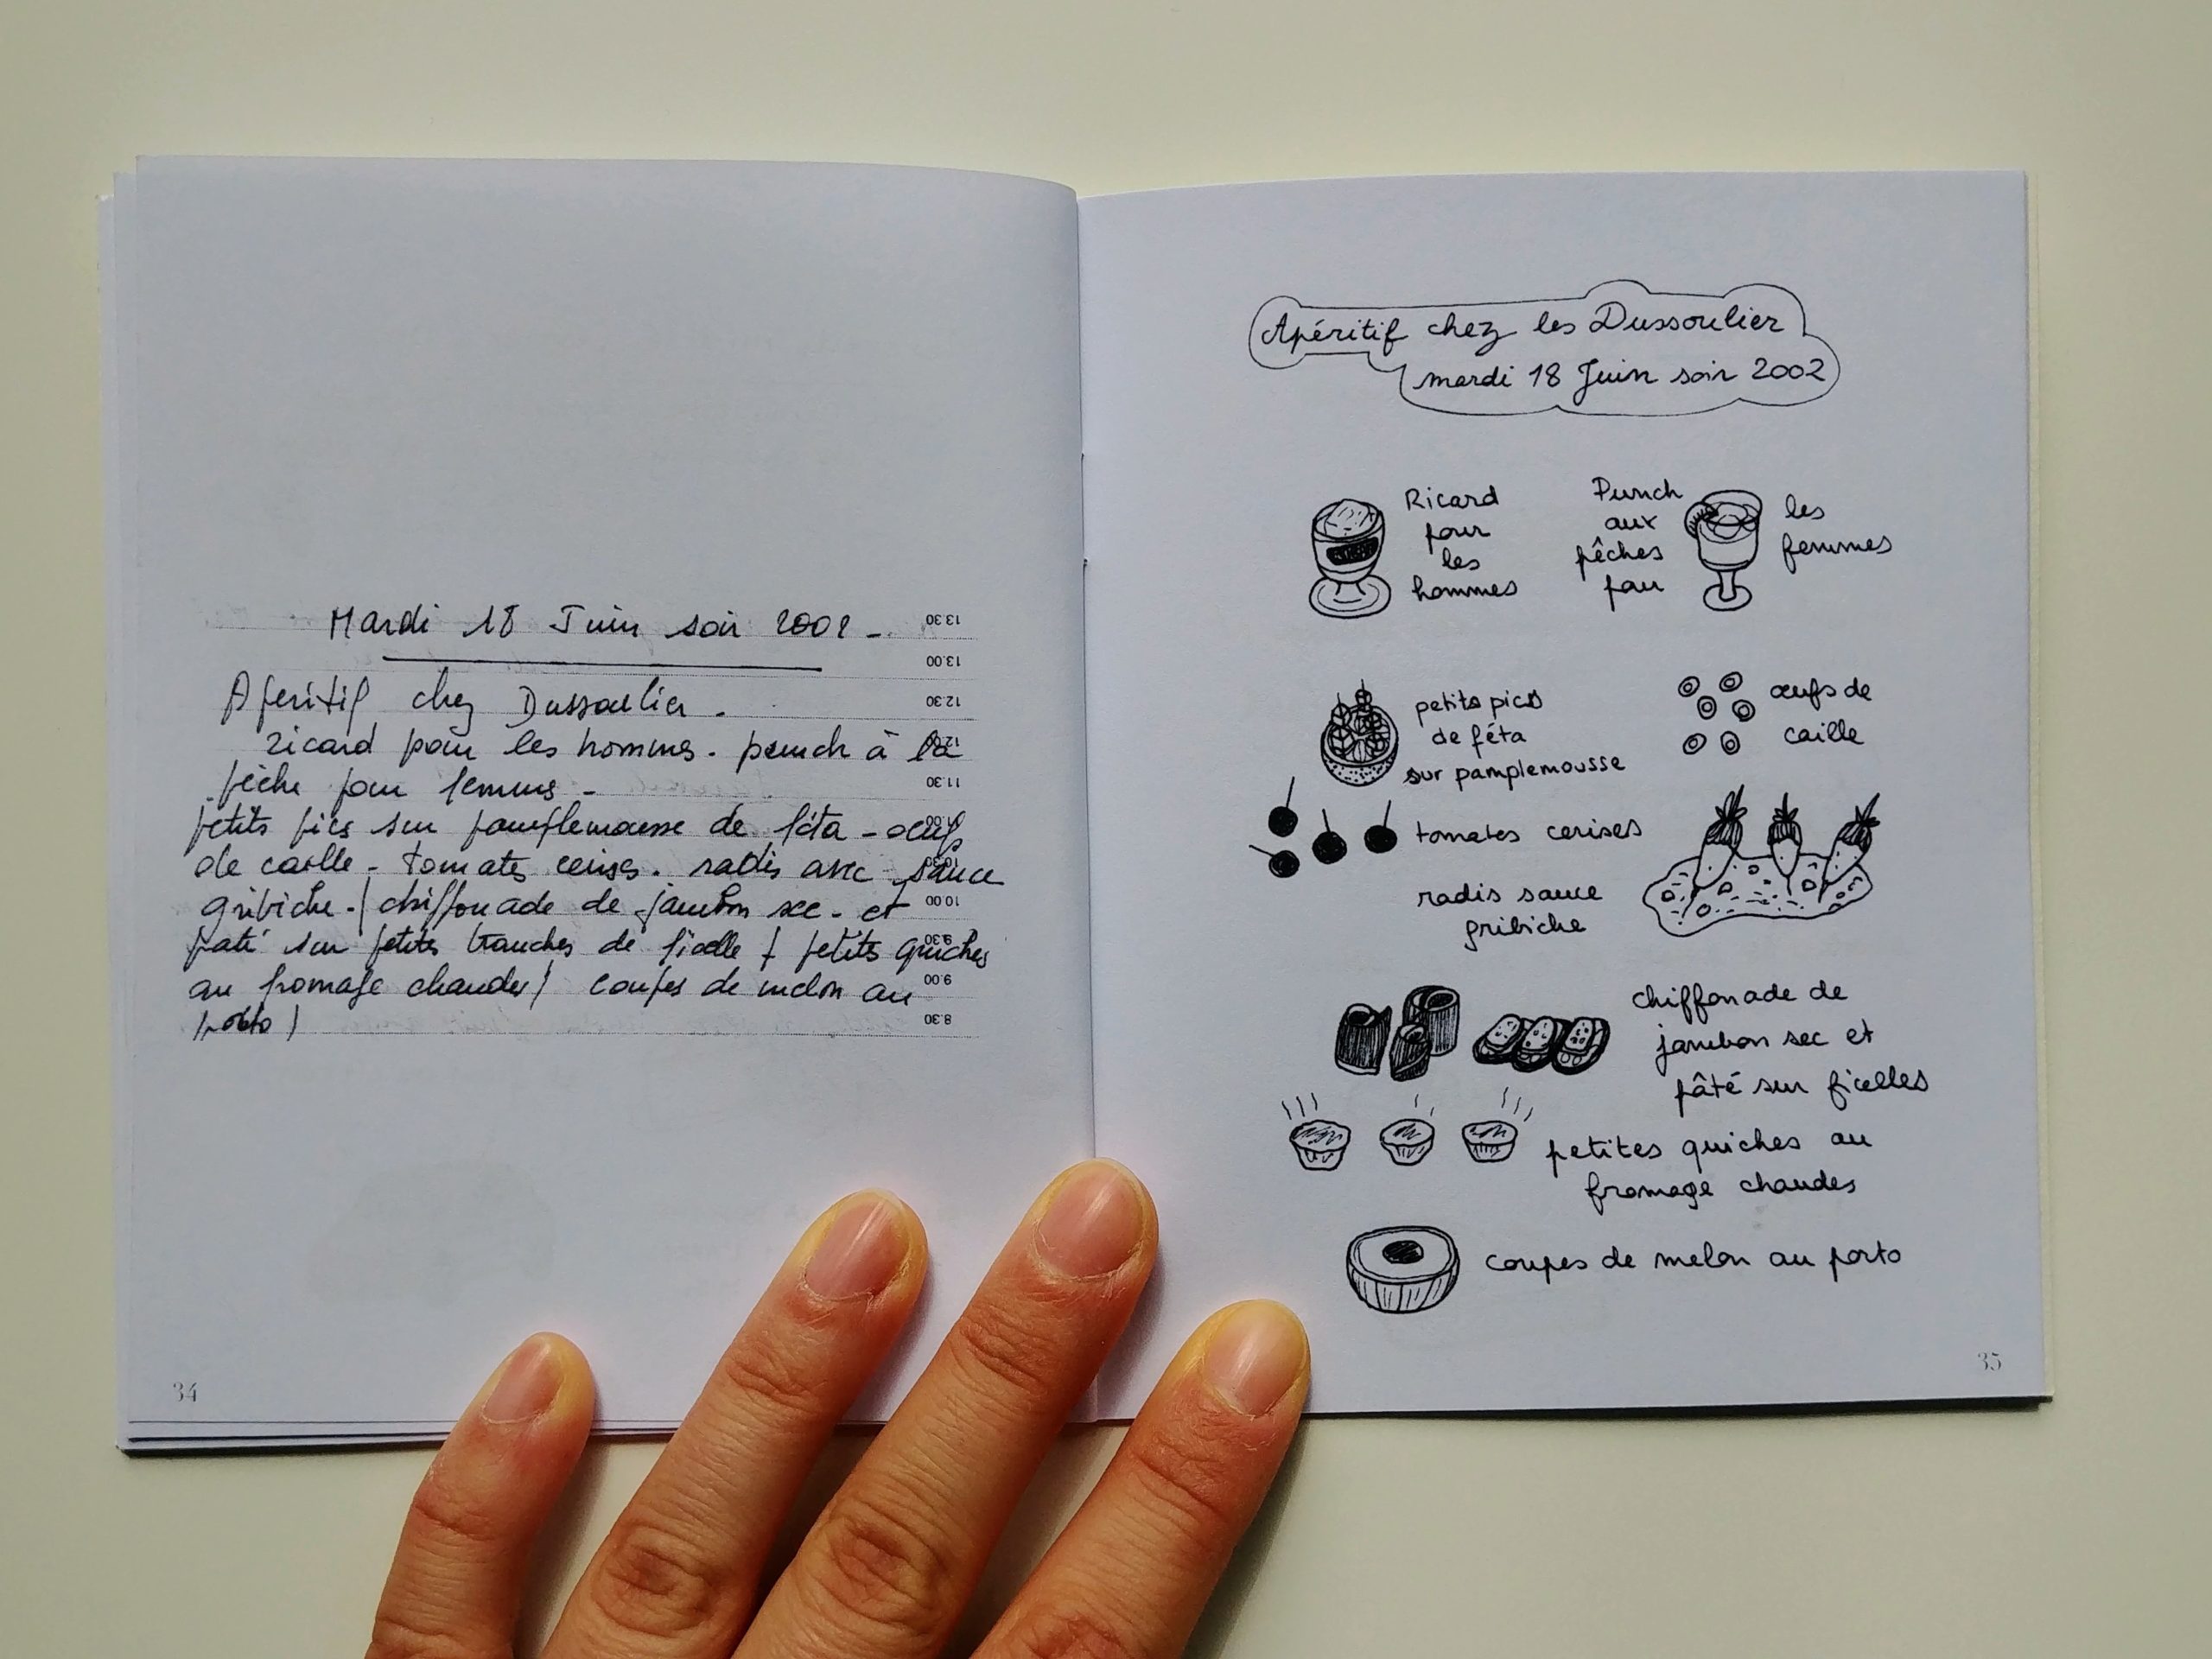 Mardi 18 Juin soir 2002 -
Aperitif chez Dussoulier.
ricard pour les hommes. punch à la
pêche pour femmes -
petits pics sur pamplemousse de féta - oeufs
de caille - tomates cerises. radis avec sauce
gribiche - / chiffonade de jambon sec - et
paté sur petites tranches de ficelle / petits quiches
au fromage chaudes / coupes de melon au
porto /
13.30
13.00
12.30
12.00
11.30
11.00
10.30
10.00
9.30
9.00
8.30
34
Apéritif chez les Dussoulier
mardi 18 Juin soir 2002
Ricard
pour
les
hommes
Punch
aux
pêches
pour
les
femmes
petits pics
de féta
sur pamplemousse
œufs de
caille
tomates cerises
radis sauce
gribiche
chiffonade de
jambon sec et
pâté sur ficelles
petites quiches au
fromage chaudes
coupes de melon au porto
35